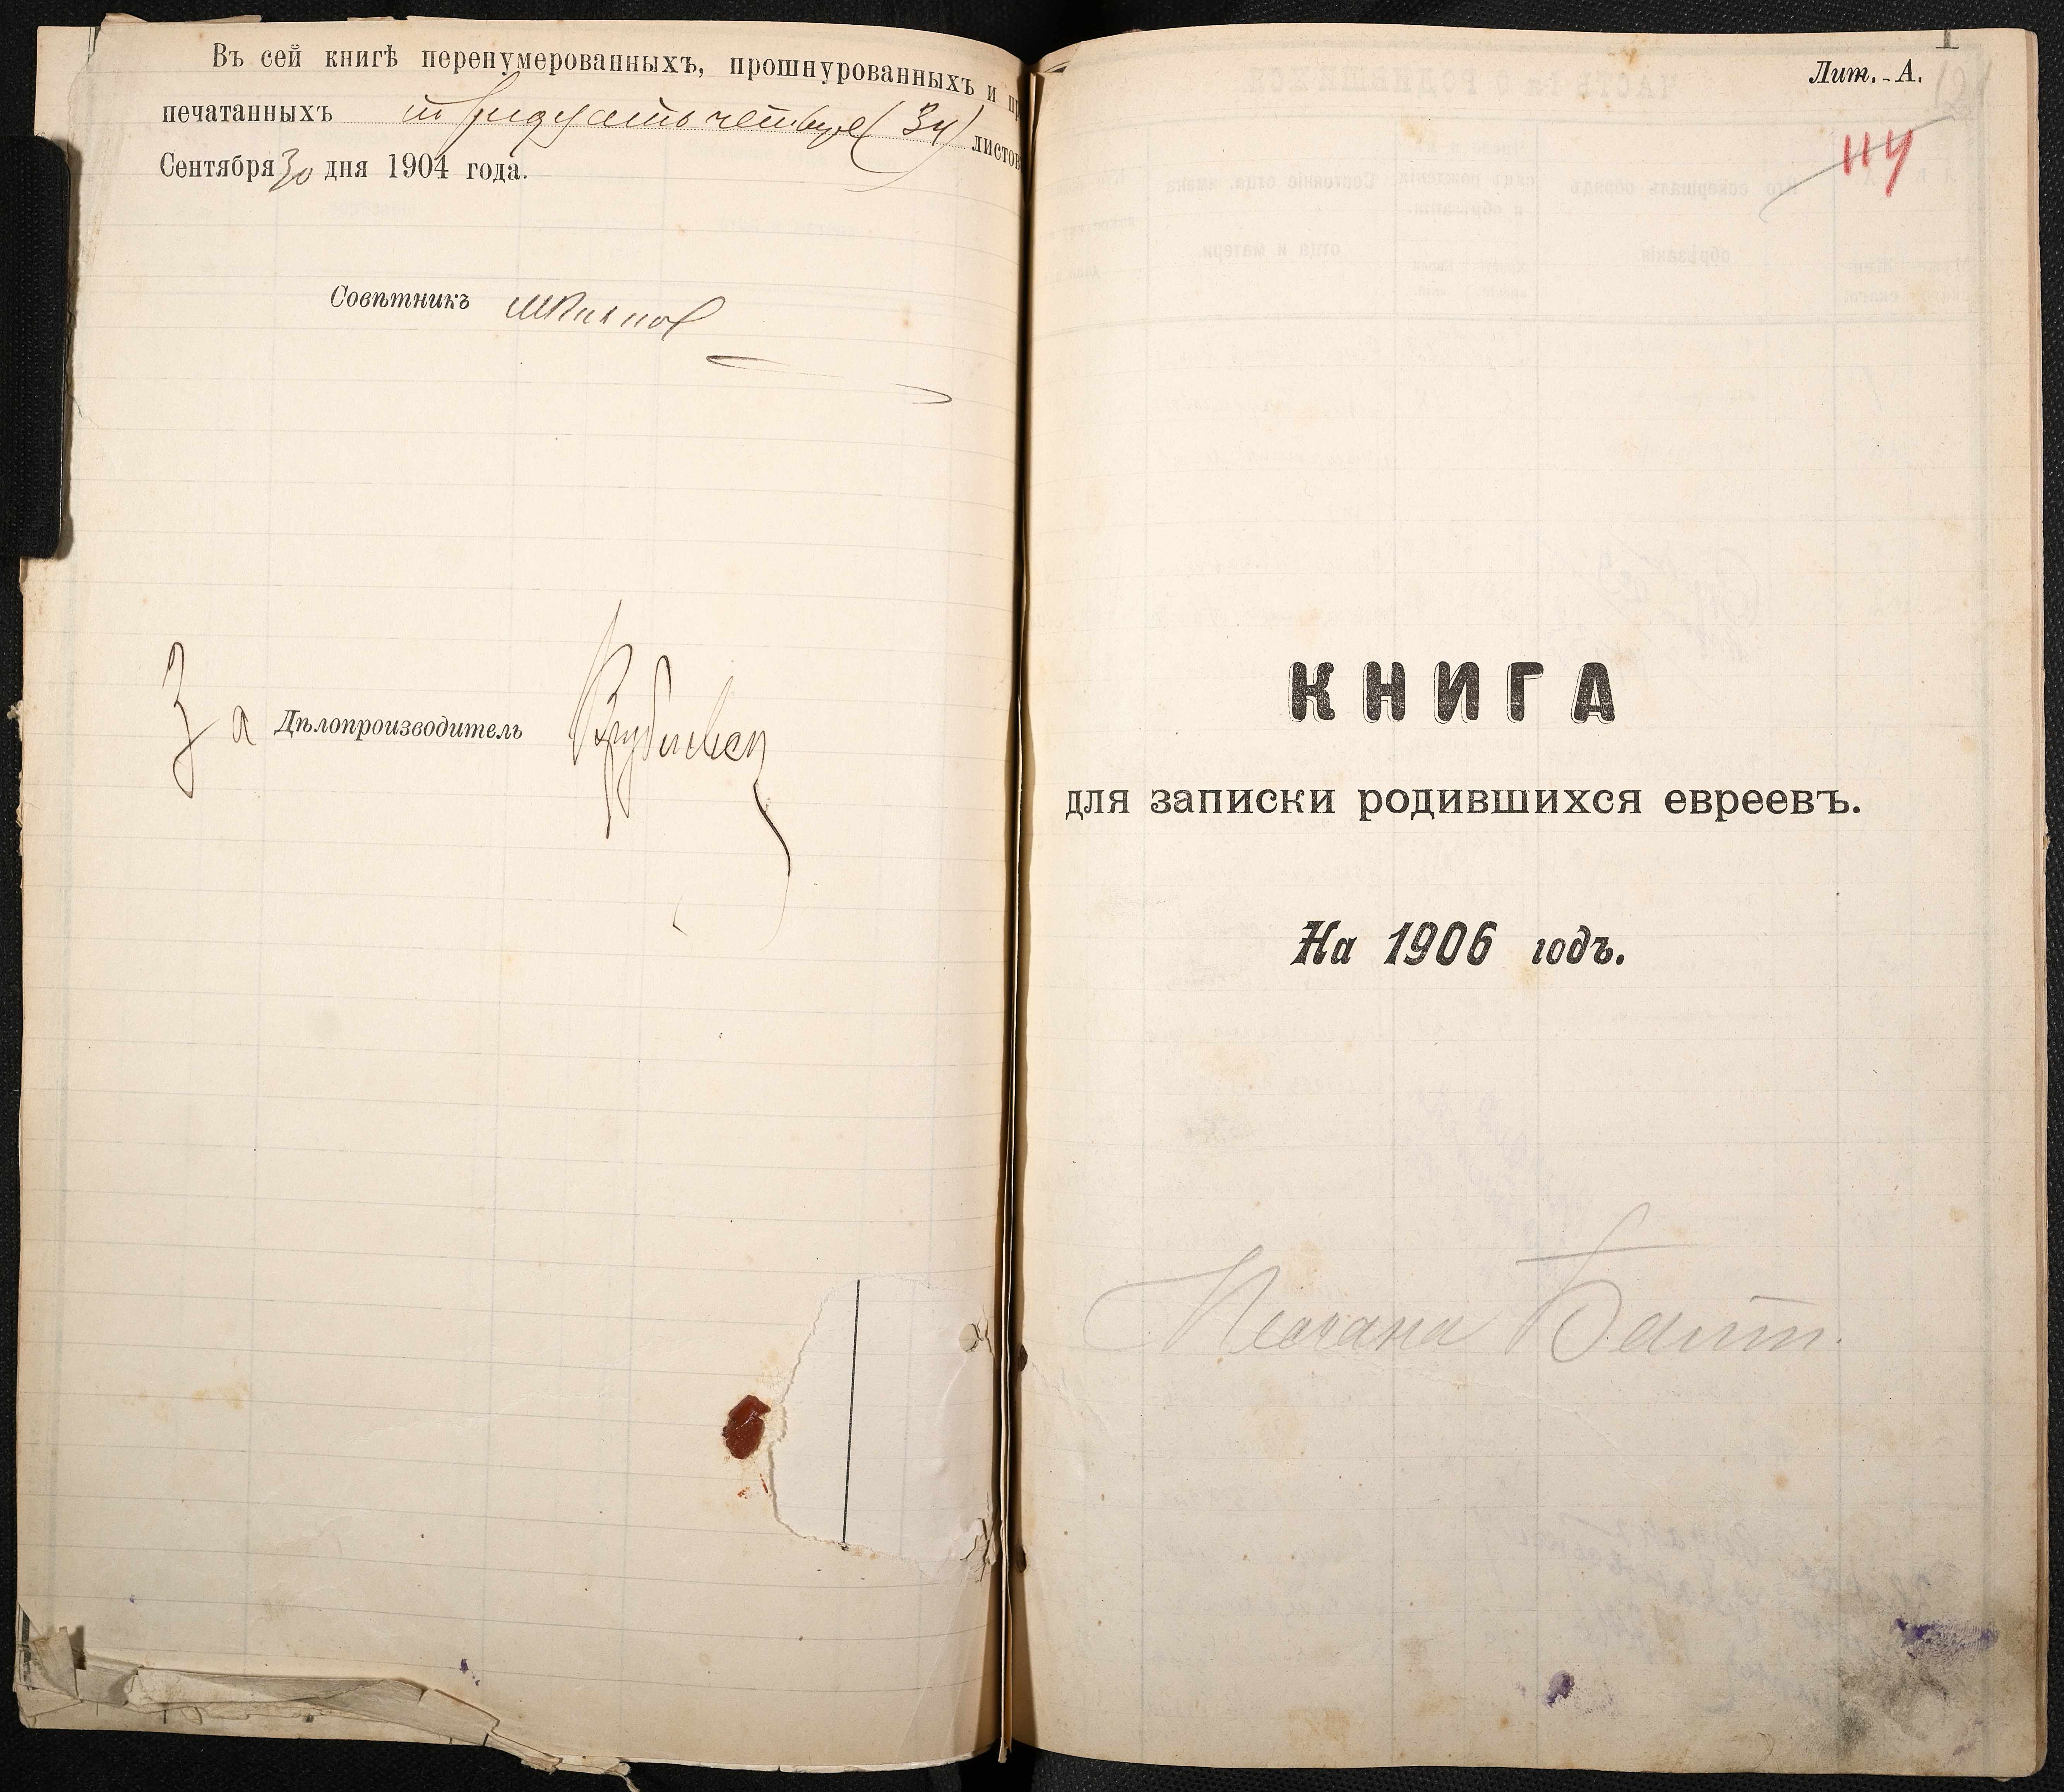 Въ сей книгѣ перенумерованныхъ, прошнурованныхъ и
печатанныхъ тридцать четыре (34) листов
Сентября 30 дня 1904 года.
Совѣтникъ
За Дѣлопроизводитель
Лит. А.
114
КНИГА
для записки родившихся евреевъ.
На 1906 годъ.